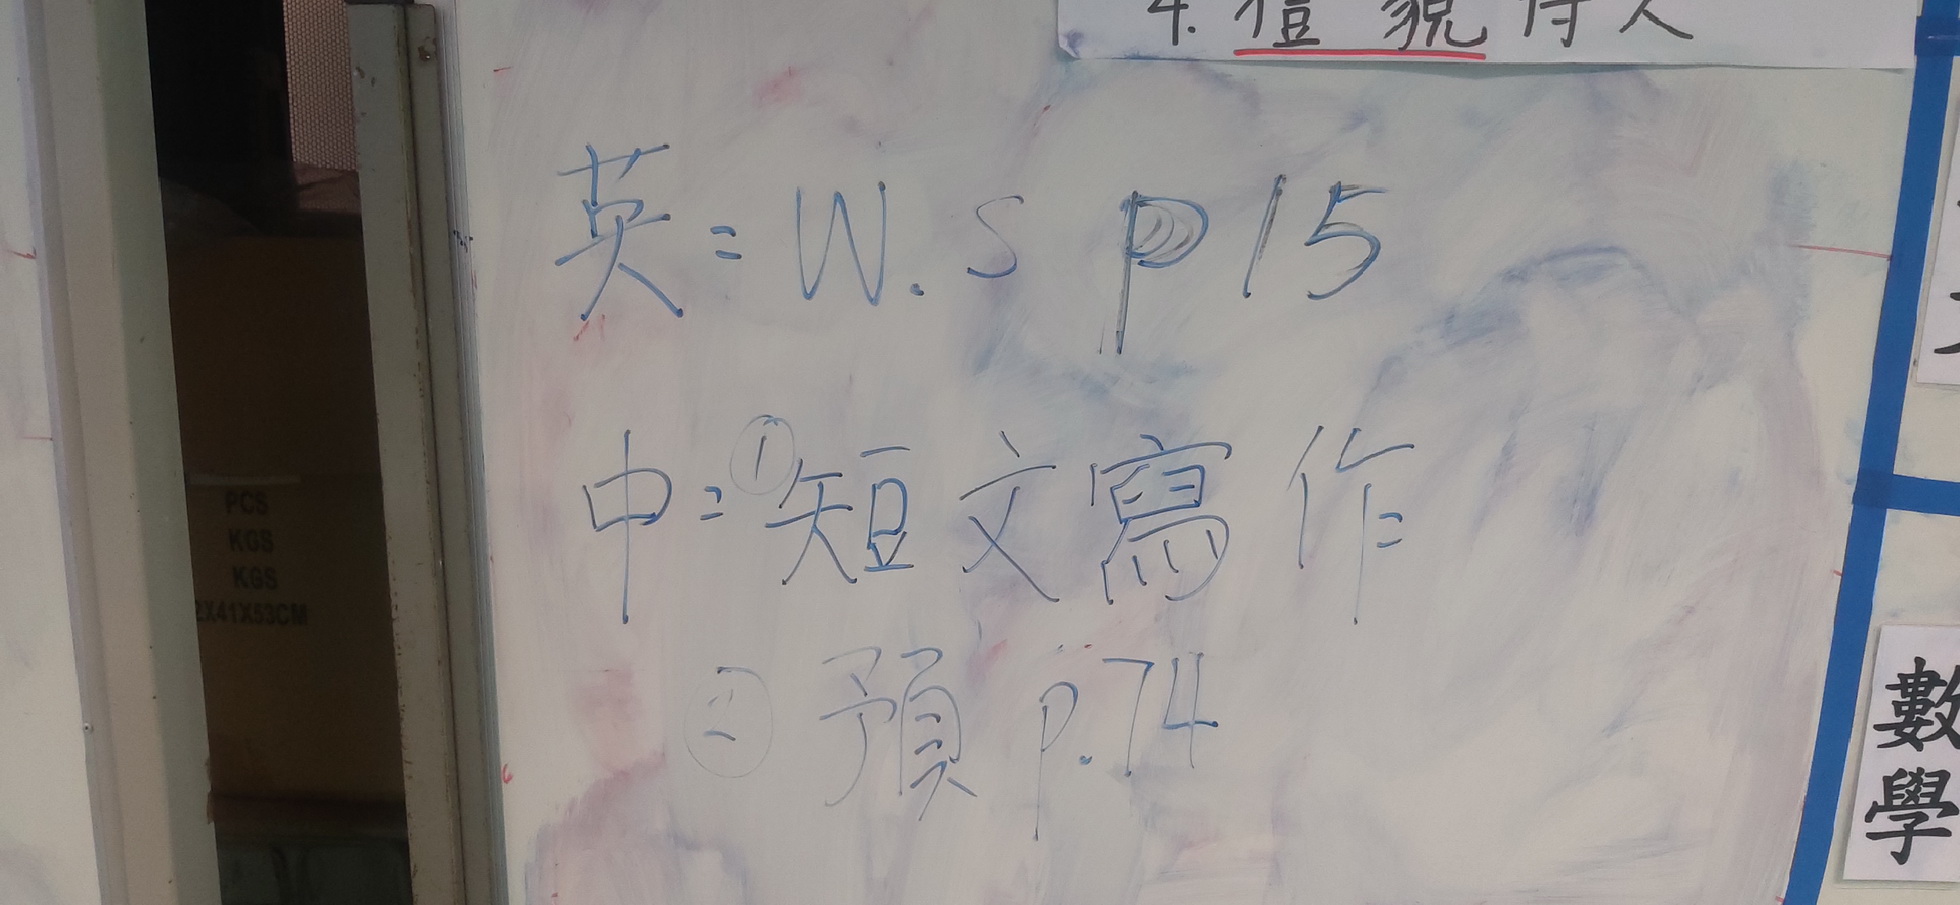 4. 禮貌待人
英: W.S P15
中: ①短文寫作
② 預 p.74
PCS
KGS
KGS
2X41X53CM
數學